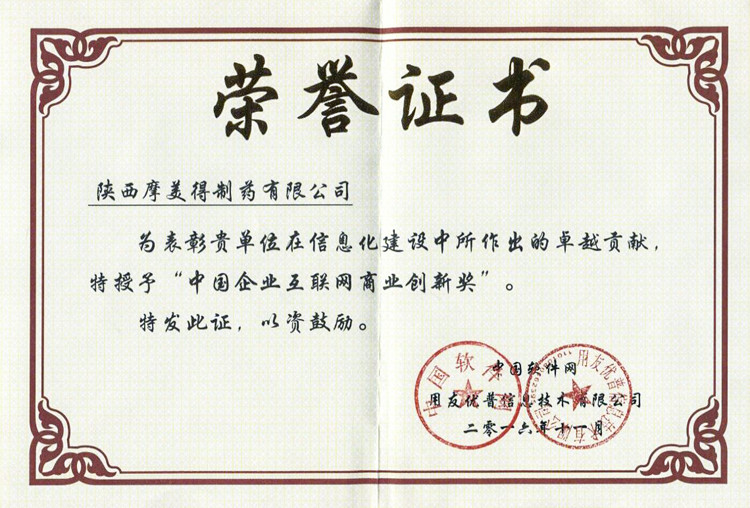 荣誉证书
陕西摩美得制药有限公司
为表彰贵单位在信息化建设中所作出的卓越贡献，
特授予“中国企业互联网商业创新奖”。
特发此证，以资鼓励。
中国软件网
用友优普信息技术有限公司
二零一六年十一月
中国软件网
用友优普信息技术有限公司